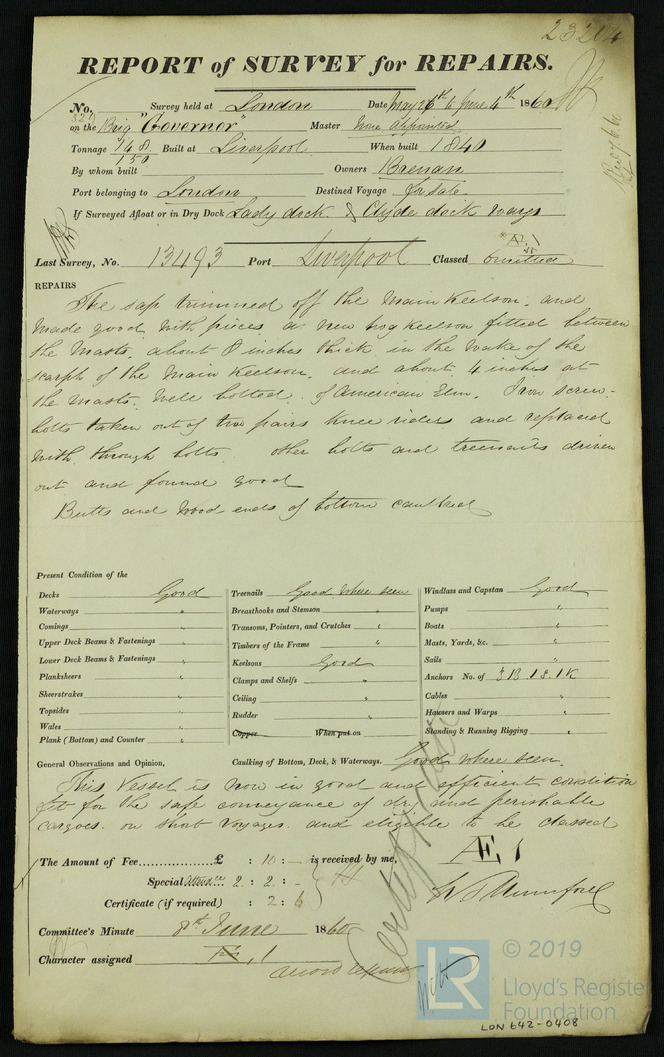 23204
REPORT of SURVEY for REPAIRS.
No. 321 Survey held at London Date May 26th to June 4th 1860
on the Brig "Governor" Master None appointed
Tonnage 148 Built at Liverpool When built 1840
150
By whom built Owners Brenan
Port belonging to London Destined Voyage for Sale
If Surveyed Afloat or in Dry Dock Lady dock & Clyde dock ways
Last Survey, No. 13493 Port Liverpool Classed *Æ.1
omitted
REPAIRS
The sap trimmed off the Main Keelson, and
made good with pieces a new hog keelson fitted between
the Masts, about 8 inches thick in the wake of the
scarph of the Main Keelson, and about 4 inches at
the Masts, well bolted, of American Elm. Iron screw-
bolts taken out of two pairs knee riders and replaced
with through bolts. other bolts and treenails driven
out and found good
Butts and Wood ends of bottom caulked
Present Condition of the
Decks Good
Waterways "
Comings "
Upper Deck Beams & Fastenings "
Lower Deck Beams & Fastenings "
Planksheers "
Sheerstrakes "
Topsides "
Wales "
Plank (Bottom) and Counter "
Treenails Good Where seen
Breasthooks and Stemson "
Transoms, Pointers, and Crutches "
Timbers of the Frame "
Keelsons Good
Clamps and Shelfs "
Ceiling "
Rudder "
Copper When put on
Windlass and Capstan Good
Pumps "
Boats "
Masts, Yards, &c. "
Sails "
Anchors No. of 3 B. 1 S. 1 K
Cables "
Hawsers and Warps "
Standing & Running Rigging "
General Observations and Opinion, Caulking of Bottom, Deck, & Waterways. Good where seen.
This Vessel is now in good and efficient condition
fit for the safe conveyance of dry and perishable
cargoes on short Voyages and eligible to be classed
Æ 1
The Amount of Fee £ : 10 : - is received by me,
Special Attendce 2 : 2 : -
Certificate (if required) : 2 : 6
Committee's Minute 8th June 1860
Character assigned Æ, 1
Certificate
© 2019
Lloyd's Register
Foundation
LR
LON 642-0408